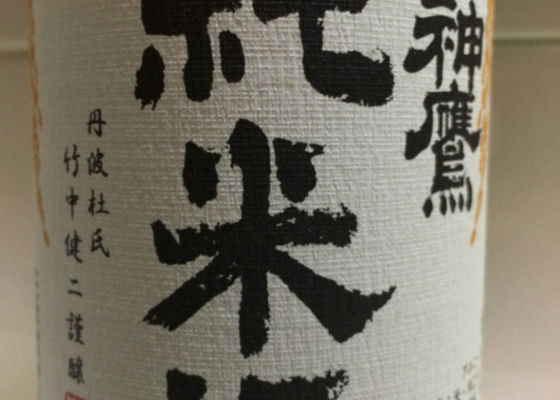 神鷹
純米
丹波杜氏
竹中健二謹醸